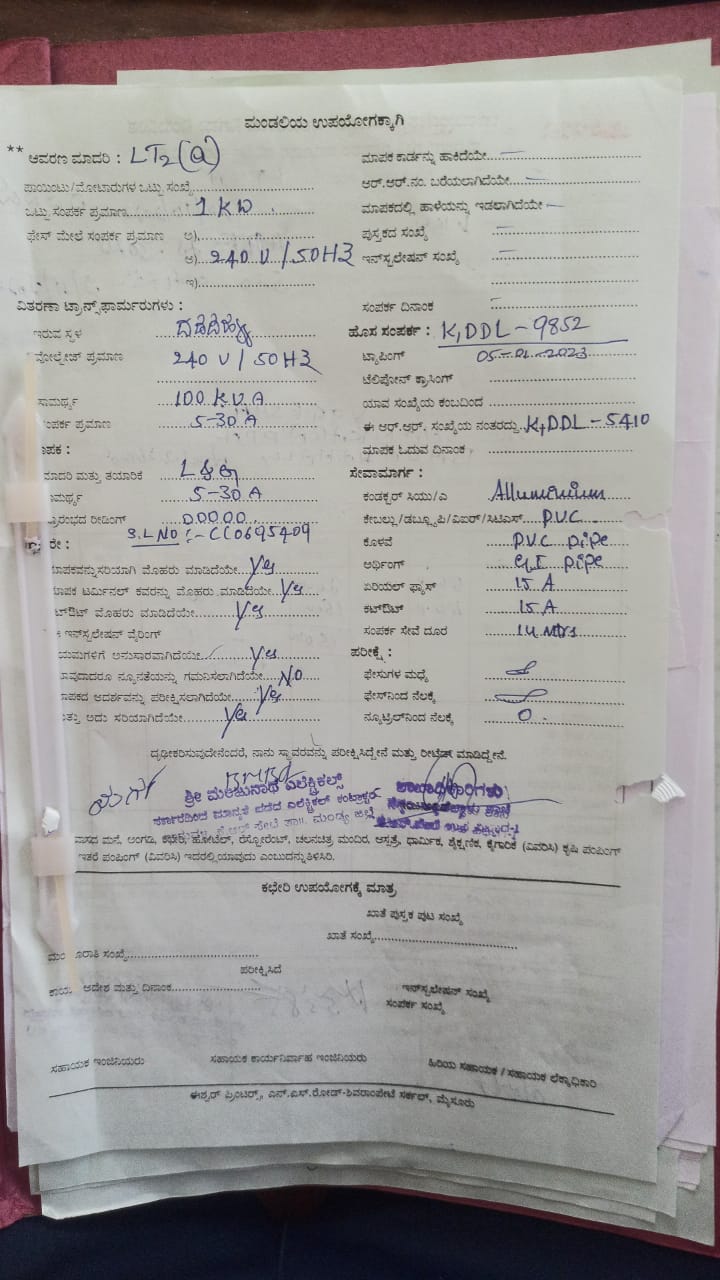 ಮಂಡಲಿಯ ಉಪಯೋಗಕ್ಕಾಗಿ
** ಆವರಣ ಮಾದರಿ : LT2(a)
ಪಾಯಿಂಟು/ಮೋಟಾರುಗಳ ಒಟ್ಟು ಸಂಖ್ಯೆ
ಒಟ್ಟು ಸಂಪರ್ಕ ಪ್ರಮಾಣ 1 KW
ಫೇಸ್ ಮೇಲೆ ಸಂಪರ್ಕ ಪ್ರಮಾಣ ಅ)
ಆ) 240 V/50HZ
ಇ)
ವಿತರಣಾ ಟ್ರಾನ್ಸ್‌ಫಾರ್ಮರುಗಳು :
ಇರುವ ಸ್ಥಳ
ವೋಲ್ಟೇಜ್ ಪ್ರಮಾಣ 240 V/50HZ
ಸಾಮರ್ಥ್ಯ 100 K.V.A
ಸಂಪರ್ಕ ಪ್ರಮಾಣ 5-30 A
ಮಾಪಕ :
ಮಾದರಿ ಮತ್ತು ತಯಾರಿಕೆ L&G
ಸಾಮರ್ಥ್ಯ 5-30 A
ಪ್ರಾರಂಭದ ರೀಡಿಂಗ್ 00000
ರೇ : S.L NO :- CC0695409
ಮಾಪಕವನ್ನು ಸರಿಯಾಗಿ ಮೊಹರು ಮಾಡಿದೆಯೇ Yes
ಮಾಪಕ ಟರ್ಮಿನಲ್ ಕವರನ್ನು ಮೊಹರು ಮಾಡಿದೆಯೇ Yes
ಕಟ್‌ಔಟ್ ಮೊಹರು ಮಾಡಿದೆಯೇ Yes
ಇನ್‌ಸ್ಟಲೇಷನ್ ವೈರಿಂಗ್
ನಿಯಮಗಳಿಗೆ ಅನುಸಾರವಾಗಿದೆಯೇ Yes
ಯಾವುದಾದರೂ ನ್ಯೂನತೆಯನ್ನು ಗಮನಿಸಲಾಗಿದೆಯೇ NO
ಮಾಪಕದ ಆದರ್ಶವನ್ನು ಪರೀಕ್ಷಿಸಲಾಗಿದೆಯೇ Yes
ಮತ್ತು ಅದು ಸರಿಯಾಗಿದೆಯೇ Yes
ಮಾಪಕ ಕಾರ್ಡನ್ನು ಹಾಕಿದೆಯೇ
ಆರ್.ಆರ್.ನಂ. ಬರೆಯಲಾಗಿದೆಯೇ
ಮಾಪಕದಲ್ಲಿ ಹಾಳೆಯನ್ನು ಇಡಲಾಗಿದೆಯೇ
ಪುಸ್ತಕದ ಸಂಖ್ಯೆ
ಇನ್‌ಸ್ಟಲೇಷನ್ ಸಂಖ್ಯೆ
ಸಂಪರ್ಕ ದಿನಾಂಕ
ಹೊಸ ಸಂಪರ್ಕ : K,DDL-9852
ಟ್ಯಾಪಿಂಗ್ 05-01-2023
ಟೆಲಿಫೋನ್ ಕ್ರಾಸಿಂಗ್
ಯಾವ ಸಂಖ್ಯೆಯ ಕಂಬದಿಂದ
ಈ ಆರ್.ಆರ್. ಸಂಖ್ಯೆಯ ನಂತರದ್ದು K,DDL-5410
ಮಾಪಕ ಓದುವ ದಿನಾಂಕ
ಸೇವಾಮಾರ್ಗ :
ಕಂಡಕ್ಟರ್ ಸಿಯು/ಎ Alluminium
ಕೇಬಲ್ಲು/ಡಬ್ಲ್ಯೂಪಿ/ವಿಐಆರ್/ಸಿಟಿಎಸ್ P.V.C
ಕೊಳವೆ P.V.C pipe
ಅರ್ಥಿಂಗ್ G.I pipe
ಏರಿಯಲ್ ಫ್ಯೂಸ್ 15 A
ಕಟ್‌ಔಟ್ 15 A
ಸಂಪರ್ಕ ಸೇವೆ ದೂರ 14 Mtrs
ಪರೀಕ್ಷೆ :
ಫೇಸುಗಳ ಮಧ್ಯೆ
ಫೇಸ್‌ನಿಂದ ನೆಲಕ್ಕೆ
ನ್ಯೂಟ್ರಲ್‌ನಿಂದ ನೆಲಕ್ಕೆ 0.
ದೃಢೀಕರಿಸುವುದೇನೆಂದರೆ, ನಾನು ಸ್ಥಾವರವನ್ನು ಪರೀಕ್ಷಿಸಿದ್ದೇನೆ ಮತ್ತು ರೀಟೆಸ್ಟ್ ಮಾಡಿದ್ದೇನೆ.
ಶ್ರೀ ಮಂಜುನಾಥ ಎಲೆಕ್ಟ್ರಿಕಲ್ಸ್
ಸರ್ಕಾರದಿಂದ ಮಾನ್ಯತೆ ಪಡೆದ ಎಲೆಕ್ಟ್ರಿಕಲ್ ಕಂಟ್ರಾಕ್ಟರ್
ಮಂಡ್ಯ ಜಿಲ್ಲೆ
ವಾಸದ ಮನೆ, ಅಂಗಡಿ, ಕಛೇರಿ, ಹೋಟೆಲ್, ರೆಸ್ಟೋರೆಂಟ್, ಚಲನಚಿತ್ರ ಮಂದಿರ, ಆಸ್ಪತ್ರೆ, ಧಾರ್ಮಿಕ, ಶೈಕ್ಷಣಿಕ, ಕೈಗಾರಿಕೆ (ವಿವರಿಸಿ) ಕೃಷಿ ಪಂಪಿಂಗ್
ಇತರೆ ಪಂಪಿಂಗ್ (ವಿವರಿಸಿ) ಇದರಲ್ಲಿ ಯಾವುದು ಎಂಬುದನ್ನು ತಿಳಿಸಿರಿ.
ಕಛೇರಿ ಉಪಯೋಗಕ್ಕೆ ಮಾತ್ರ
ಖಾತೆ ಪುಸ್ತಕ ಪುಟ ಸಂಖ್ಯೆ
ಖಾತೆ ಸಂಖ್ಯೆ
ಸಂಖ್ಯೆ
ಪರೀಕ್ಷಿಸಿದೆ
ಆದೇಶ ಮತ್ತು ದಿನಾಂಕ
ಇನ್‌ಸ್ಟಲೇಷನ್ ಸಂಖ್ಯೆ
ಸಂಪರ್ಕ ಸಂಖ್ಯೆ
ಸಹಾಯಕ ಇಂಜಿನಿಯರು ಸಹಾಯಕ ಕಾರ್ಯನಿರ್ವಾಹ ಇಂಜಿನಿಯರು ಹಿರಿಯ ಸಹಾಯಕ / ಸಹಾಯಕ ಲೆಕ್ಕಾಧಿಕಾರಿ
ಈಶ್ವರ್ ಪ್ರಿಂಟರ್ಸ್, ಎನ್.ಎಸ್.ರೋಡ್-ಶಿವರಾಂಪೇಟೆ ಸರ್ಕಲ್, ಮೈಸೂರು